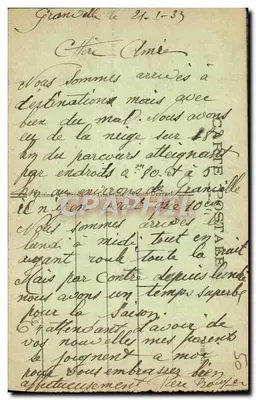 Granville le 21-1-35
Chère Amie
Nous sommes arrivés à
destination mais avec
bien du mal. Nous avons
eu de la neige sur 18
km du parcours atteignant
par endroits 0m80 et à 5
km aux environs de Granville
il n'y en avait pas
Nous sommes arrivés le
lundi à midi tout en
ayant roulé toute la nuit
Mais par contre depuis lundi
nous avons un temps superbe
pour la saison.
En attendant d'avoir de
vos nouvelles mes parents
se joignent à moi
pour vous embrasser bien
affectueusement
CARTE POSTALE
50